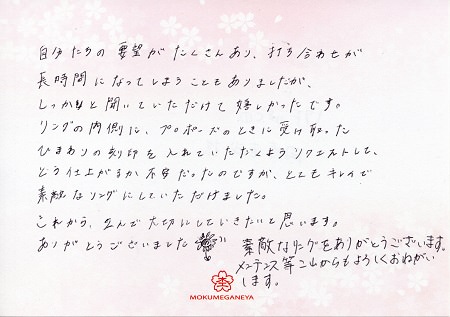 自分たちの要望がたくさんあり、打ち合わせが
長時間になってしまうこともありましたが、
しっかりと聞いていただけて嬉しかったです。
リングの内側に、プロポーズのときに受け取った
ひまわりの刻印を入れていただくようリクエストして、
どう仕上がるか不安だったのですが、とてもキレイで
素敵なリングにしていただけました。
これから、2人で大切にしていきたいと思います。
ありがとうございました
素敵なリングをありがとうございます。
メンテンス等これからもよろしくおねがい
します。
MOKUMEGANEYA